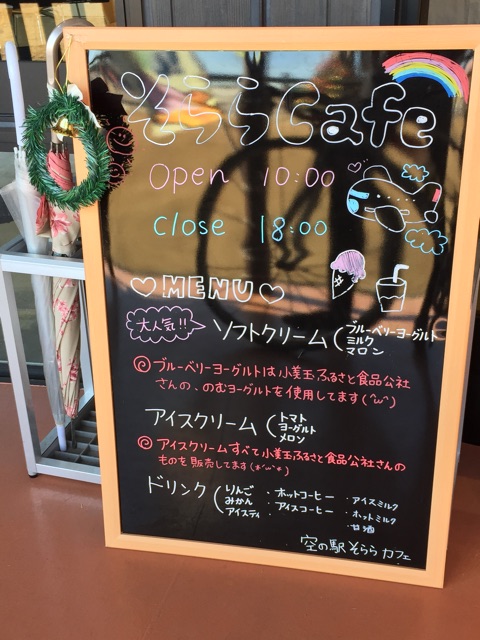 そららCafe
Open 10:00
Close 18:00
♡MENU♡
大人気!!
ソフトクリーム(ブルーベリーヨーグルト
ミルク
マロン
ブルーベリーヨーグルトは小美玉ふるさと食品公社
さんの、のむヨーグルトを使用してます(^ω^)
アイスクリーム(トマト
ヨーグルト
メロン
アイスクリームすべて小美玉ふるさと食品公社さんの
ものを販売してます(*^ω^*)
ドリンク(りんご ・ホットコーヒー ・アイスミルク
みかん ・アイスコーヒー ・ホットミルク
アイスティ ・甘酒
空の駅そらら カフェ